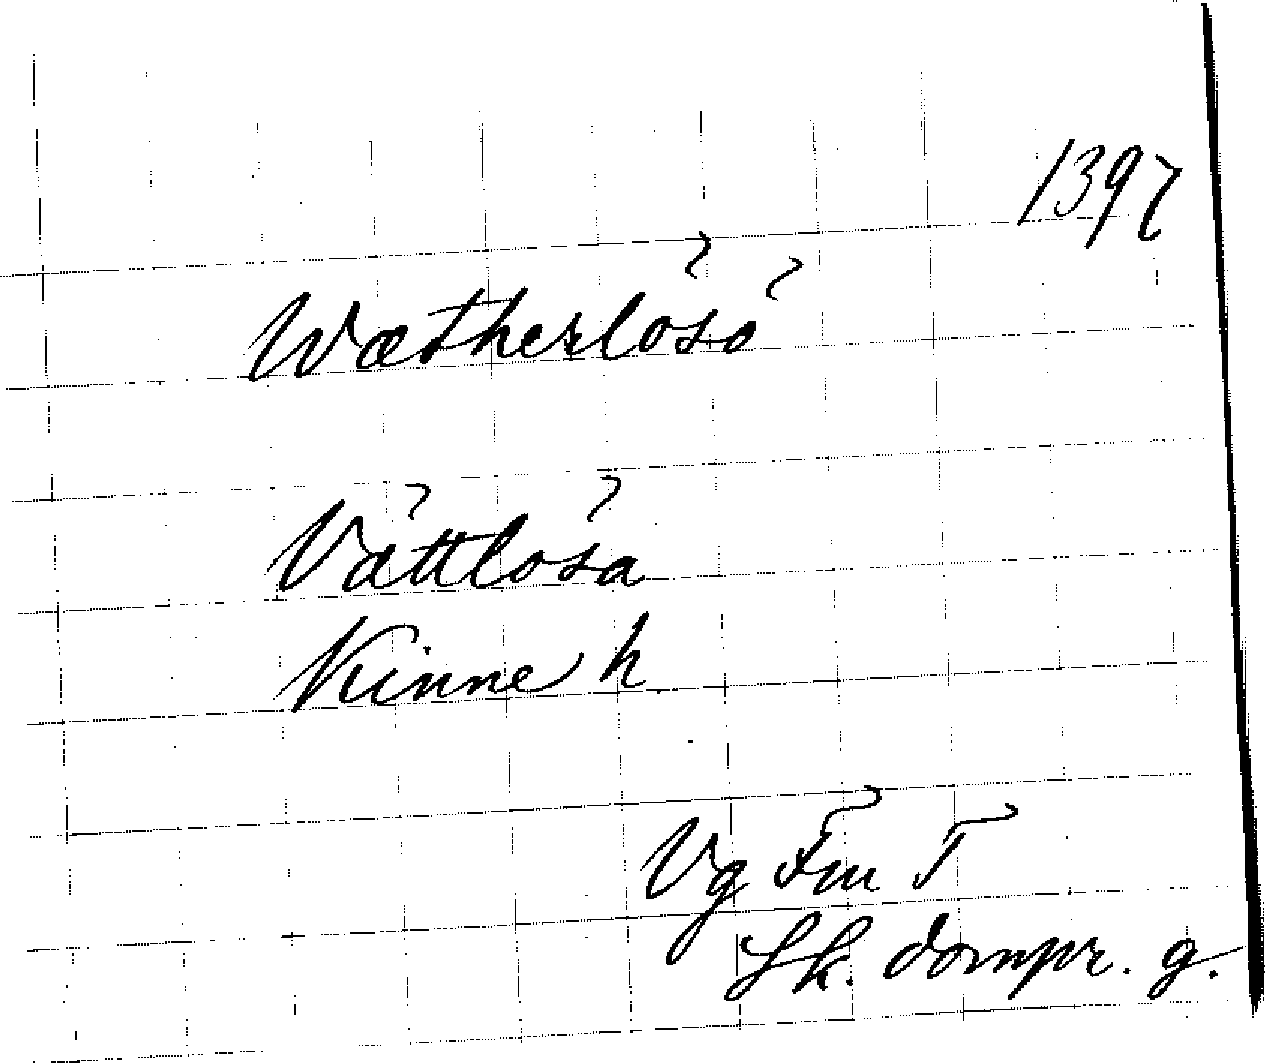 1397
Wætherlösö
Vättlösa
Kinne h
Vg Fm T
Sk. dompr. g.